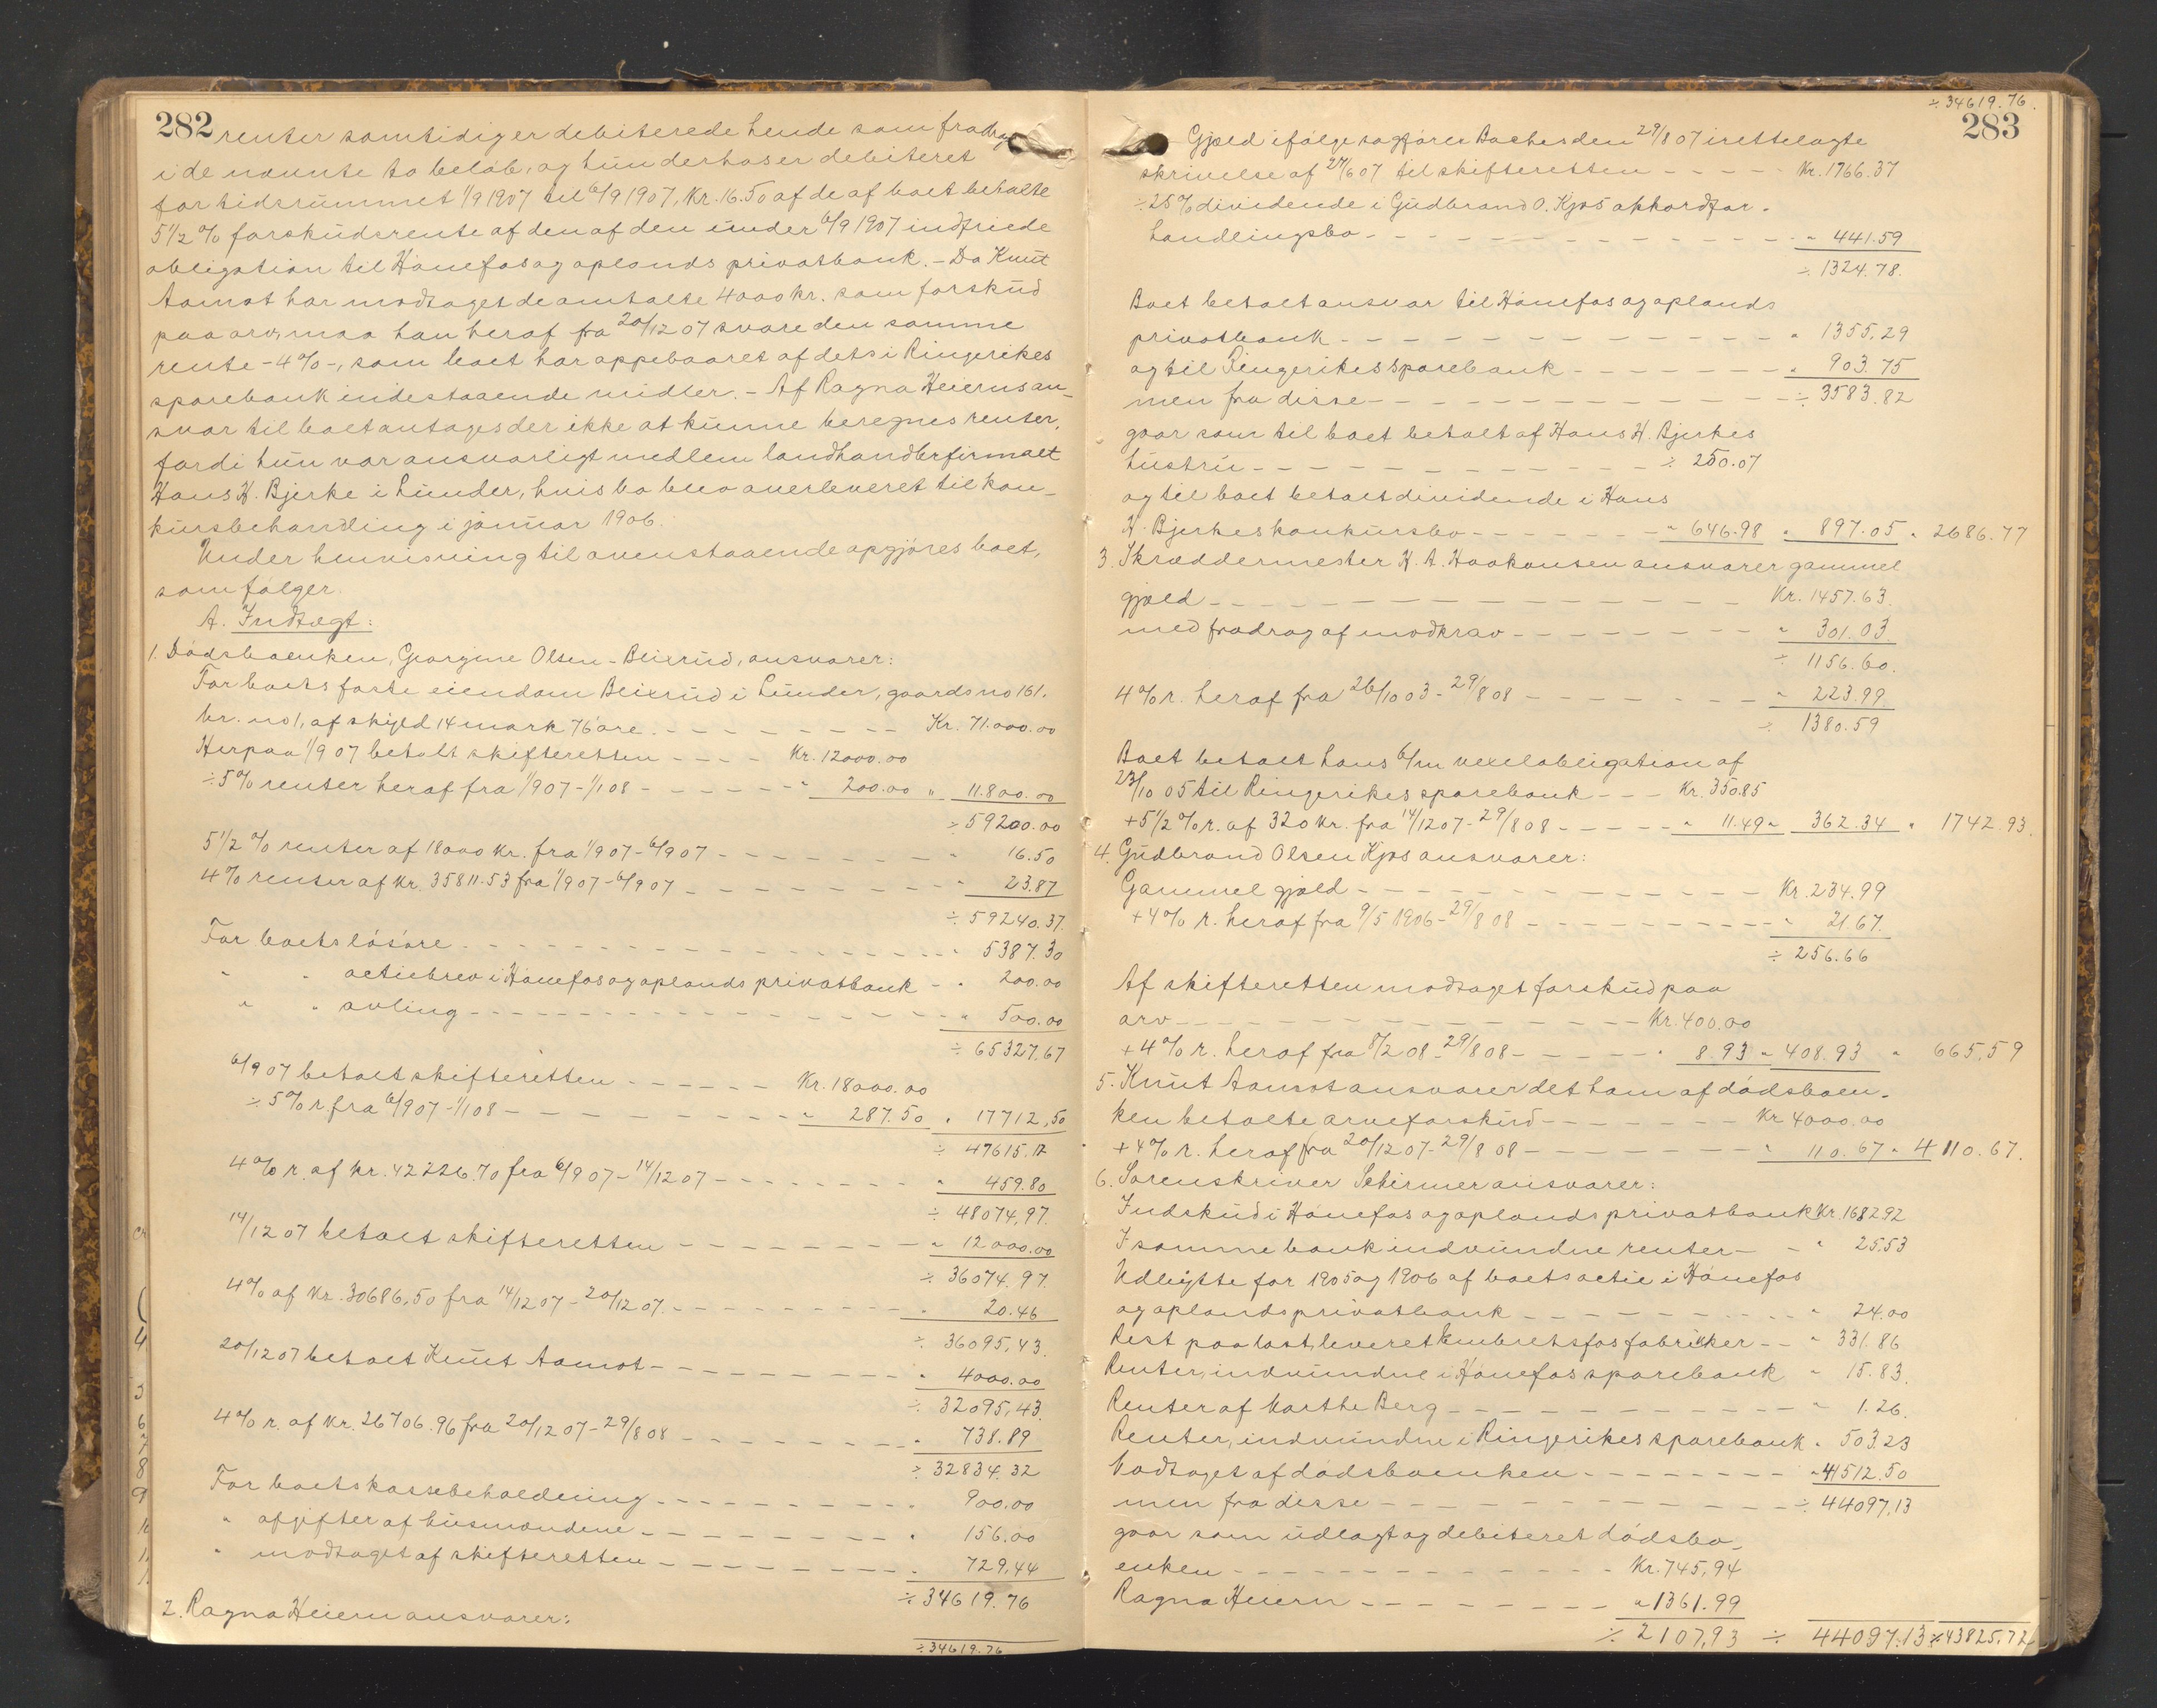 282
renter samtidig er debiterede hende som fradrag
i de nævnte to beløb, og hun derhos er debiteret
for tidsrummet 1/9 1907 til 6/9 1907, Kr. 16.50 af de af boet betalte
5 1/2 % forskudsrente af den af den under 6/9 1907 indfriede
obligation til Hønefos og oplands privatbank. - Da Knut
Aamot har modtaget de omtalte 4000 kr. som forskud
paa arv, maa han heraf fra 20/12 07 svare den samme
rente - 4 % -, som boet har oppebaaret af dets i Ringerikes
sparebank indestaaende midler. - Af Ragna Heierns an-
svar til boet antages der ikke at kunne beregnes renter,
fordi hun var ansvarligt medlem landhandlerfirmaet
Hans H. Bjerke i Lunder, hvis bo blev overleveret til kon-
kursbehandling i januar 1906.
Under henvisning til ovenstaaende opgjøres boet,
som følger.
A. Indtægt:
1. Dødsboenken, Georgine Olsen-Bleixrud, ansvarer:
For boets faste eiendom Bleixrud i Lunder, gaards no 161.
br. no 1, af skyld 14 mark 76 øre. Kr. 71.000.00
Herpaa 1/9 07 betalt skifteretten Kr. 12000.00
÷ 5 % renter heraf fra 1/9 07 - 1/1 08 " 200.00 " 11.800.00
÷ 59200.00
5 1/2 % renter af 18000 kr. fra 1/9 07 - 6/9 07 " 16.50
4 % renter af Kr. 35811.53 fra 1/9 07 - 6/9 07 " 23.87
÷ 59240.37.
For boets løsøre " 5387.30
" " actiebrev i Hønefos og oplands privatbank " 200.00
" " avling " 500.00
÷ 65327.67
6/9 07 betalt skifteretten Kr. 18000.00
÷ 5 % r fra 6/9 07 - 1/1 08 " 287.50 " 17712,50
÷ 47615.17
4 % r. af kr. 42226.70 fra 6/9 07 - 14/12 07 " 459.80
÷ 48074,97.
14/12 07 betalt skifteretten " 12000.00
÷ 36074.97.
4 % af Kr. 30686,50 fra 14/12 07 - 20/12 07. " 20.46
÷ 36095,43.
20/12 07 betalt Knut Aamot " 4000.00
÷ 32095,43.
4 % r. af kr. 26706.96 fra 20/12 07 - 29/8 08 " 738.89
÷ 32834.32
For boets kassebeholdning " 900.00
" afgifter af husmændene " 156.00
" modtaget af skifteretten " 729,44
÷ 34619.76
2. Ragna Heiern ansvarer:
÷ 34619.76
÷ 34619.76.
283
Gjæld ifølge sagfører Baches den 29/8 07 irettelagte
skrivelse af 27/6 07 til skifteretten Kr. 1766.37
÷ 25 % dividende i Gudbrand O. Kjøs akkordfor-
handlingsbo " 441.59
÷ 1324.78.
Boet betalt ansvar til Hønefos og oplands
privatbank " 1355,29
og til Ringerikes sparebank " 903.75
men fra disse ÷ 3583.82
gaar som til boet betalt af Hans H. Bjerkes
hustru ÷ 250.07
og til boet betalt dividende i Hans
H. Bjerkes konkursbo " 646.98 " 897.05 " 2686.77
3. Skræddermester H. A. Haakonsen ansvarer gammel
gjæld Kr. 1457.63.
med fradrag af modkrav " 301.03.
÷ 1156.60.
4 % r. heraf fra 26/10 03 - 29/8 08 " 223.99
÷ 1380.59
Boet betalt hans 6/m vexelobligation af
23/10 05 til Ringerikes sparebank Kr. 350.85
+ 5 1/2 % r. af 320 kr. fra 14/12 07 - 29/8 08 " 11.49 " 362.34 " 1742.93.
4. Gudbrand Olsen Kjøs ansvarer:
Gammel gjæld Kr. 234.99
+ 4 % r. heraf fra 9/5 1906 - 29/8 08 " 21.67.
÷ 256.66
Af skifteretten modtaget forskud paa
arv Kr. 400.00
+ 4 % r. heraf fra 8/2 08 - 29/8 08 " 8.93 " 408.93 " 665,59
5. Knut Aamot ansvarer det ham af dødsboen-
ken betalte arveforskud Kr 4000.00
+ 4 % r. heraf fra 20/12 07 - 29/8 08 " 110.67 " 4110.67.
6. Sorenskriver Schirmer ansvarer:
Indskud i Hønefos og oplands privatbank Kr. 1682.92
I samme bank indvundne renter " 25.53
Udbytte for 1905 og 1906 af boets actie i Hønefos
og oplands privatbank " 24.00
Rest paa last, leveret Embretsfos fabrikker " 331.86
Renter, indvundne i Hønefos sparebank " 15.83.
Renter af Marthe Berg " 1.26.
Renter, indvundne i Ringerikes sparebank " 503.23
Modtaget af dødsboenken " 41512.50
men fra disse ÷ 44097,13
gaar som udlagt og debiteret dødsbo-
enken Kr. 745,94
Ragna Heiern " 1361.99
÷ 2107,93 ÷ 44097.13 ÷ 43825,72